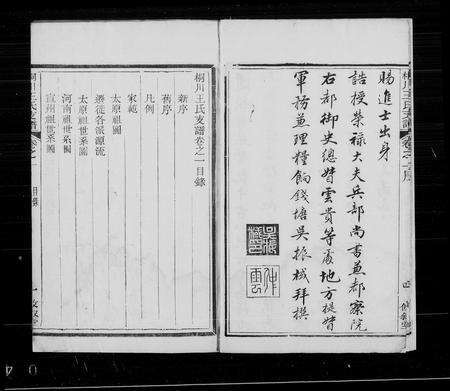 桐川王氏支譜 卷之一 序
賜進士出身
誥授榮祿大夫兵部尚書兼都察院
右都御史總督雲貴等處地方提督
軍務兼理糧餉錢塘吳振棫拜撰
吳振棫印
仲雲
桐川王氏支譜卷之一目錄
新序
舊序
凡例
家範
太原祖圖
遷徙各派源流
太原祖世系圖
河南祖世系圖
宣州祖世系圖
目錄